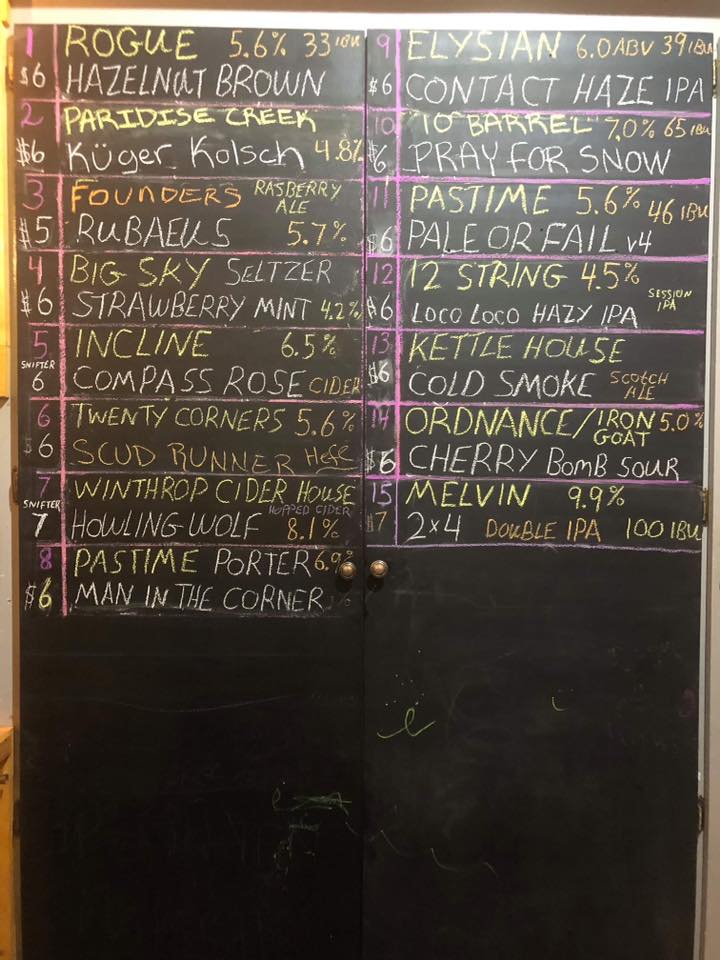 1 ROGUE 5.6% 33 IBU
$6 HAZELNUT BROWN
2 PARIDISE CREEK
$6 Küger Kolsch 4.8%
3 FOUNDERS RASBERRY ALE
$5 RUBAEUS 5.7%
4 BIG SKY SELTZER
$6 STRAWBERRY MINT 4.2%
5 INCLINE 6.5%
SNIFTER 6 COMPASS ROSE CIDER
6 TWENTY CORNERS 5.6%
$6 SCUD RUNNER Hefe
7 WINTHROP CIDER HOUSE
SNIFTER 7 HOWLING WOLF HOPPED CIDER 8.1%
8 PASTIME PORTER 6.9%
$6 MAN IN THE CORNER
9 ELYSIAN 6.0 ABV 39 IBU
$6 CONTACT HAZE IPA
10 10 BARREL 7.0% 65 IBU
$6 PRAY FOR SNOW
11 PASTIME 5.6% 46 IBU
$6 PALE OR FAIL v4
12 12 STRING 4.5%
$6 LOCO LOCO HAZY IPA SESSION IPA
13 KETTLE HOUSE
$6 COLD SMOKE SCOTCH ALE
14 ORDNANCE/IRON GOAT 5.0%
$6 CHERRY BOMB SOUR
15 MELVIN 9.9%
$7 2x4 DOUBLE IPA 100 IBU